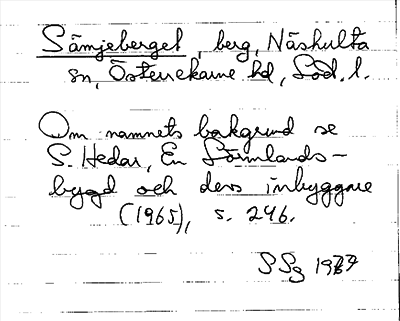 Sämjeberget, berg, Näshulta
sn, Österrekarne hd, Söd. l.
Om namnets bakgrund se
S. Hedar, En Sörmlands-
bygd och dess inbyggare
(1965), s. 246.
SSg